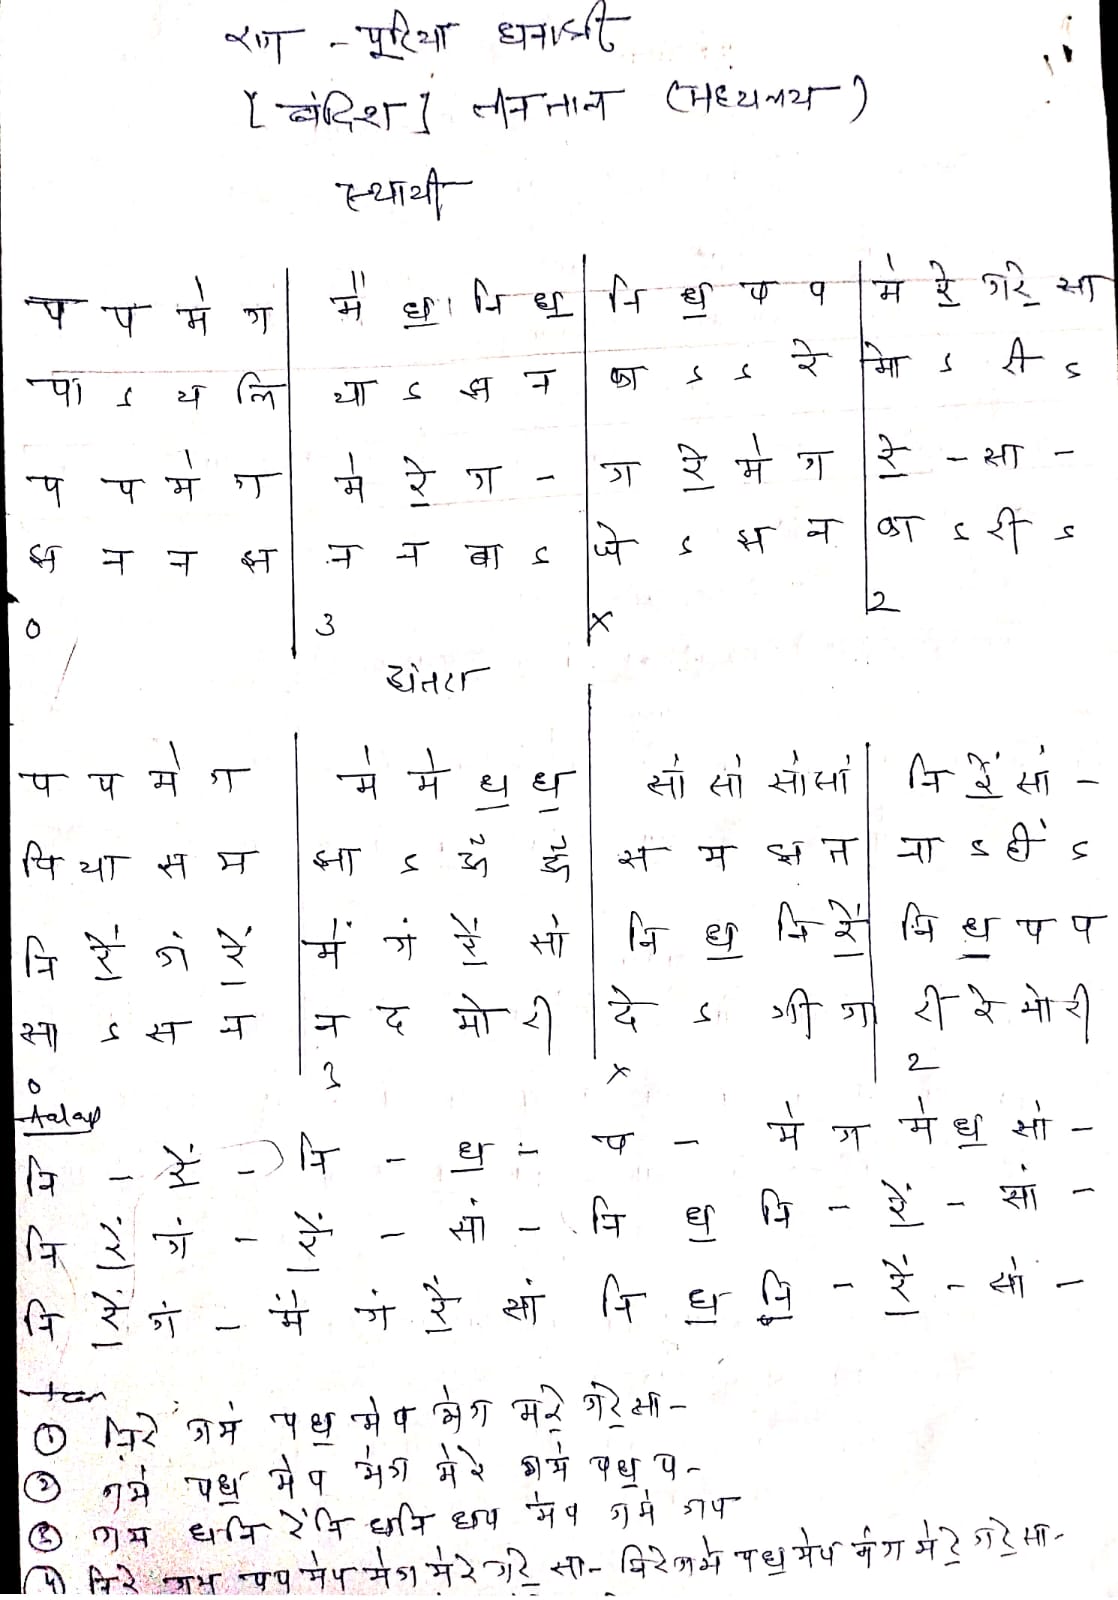 राग - पूरिया धनाश्री
[बंदिश] तीनताल (मध्यलय)
स्थायी
प प मे॑ ग | मे॑ ध॒ नि ध॒ | नि ध॒ प प | मे॑ रे॒ गरे॒ सा
पा ऽ य लि | या ऽ झ न | का ऽ ऽ रे | मो ऽ री ऽ
प प मे॑ ग | मे॑ रे॒ ग - | ग रे॒ मे॑ ग | रे॒ - सा -
झ न न झ | न न बा ऽ | जे ऽ झ न | का ऽ री ऽ
0 3 x 2
अंतरा
प प मे॑ ग | मे॑ मे॑ ध॒ ध॒ | सां सां सांसां | नि रें॒ सां -
पि या स म | झा ऽ ऊँ ऊँ | स म झ त | ना ऽ हीं ऽ
नि रें॒ गं रें॒ | में॑ गं रें॒ सां | नि ध॒ नि रें॒ | नि ध॒ प प
सा ऽ स न | न द मो री | दे ऽ गी गा | री रे मो री
0 3 x 2
Aalap
नि - रें॒ - नि - ध॒ - प - मे॑ ग मे॑ ध॒ सां -
नि रें॒ गं - रें॒ - सां - नि ध॒ नि - रें॒ - सां -
नि रें॒ गं - में॑ गं रें॒ सां नि ध॒ नि - रें॒ - सां -
tan
① नि़रे गमे॑ पध॒ मे॑प मे॑ग मरे॒ गरे॒ सा-
② गमे॑ पध॒ मे॑प मे॑ग मे॑रे गमे॑ पध॒ प-
③ गम धनि रेंनि धनि धप मे॑प गमे॑ गप
④ निरे गम पप मे॑प मे॑ग मे॑रे गरे॒ सा- नि़रे गमे॑ पध॒ मे॑प मे॑ग मे॑रे॒ गरे॒ सा-